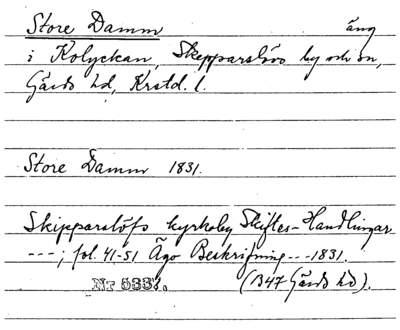 Store Damm äng
i Kolyckan, Skepparslövs by och sn,
Gärds hd, Krstd. l.
Store Damm 1831.
Skipparslöfs kyrkoby Skiftes-Handlingar
---; fol. 41-51 Ägo Beskrifning --- 1831.
Nr 5331. (1347 Gärds hd).